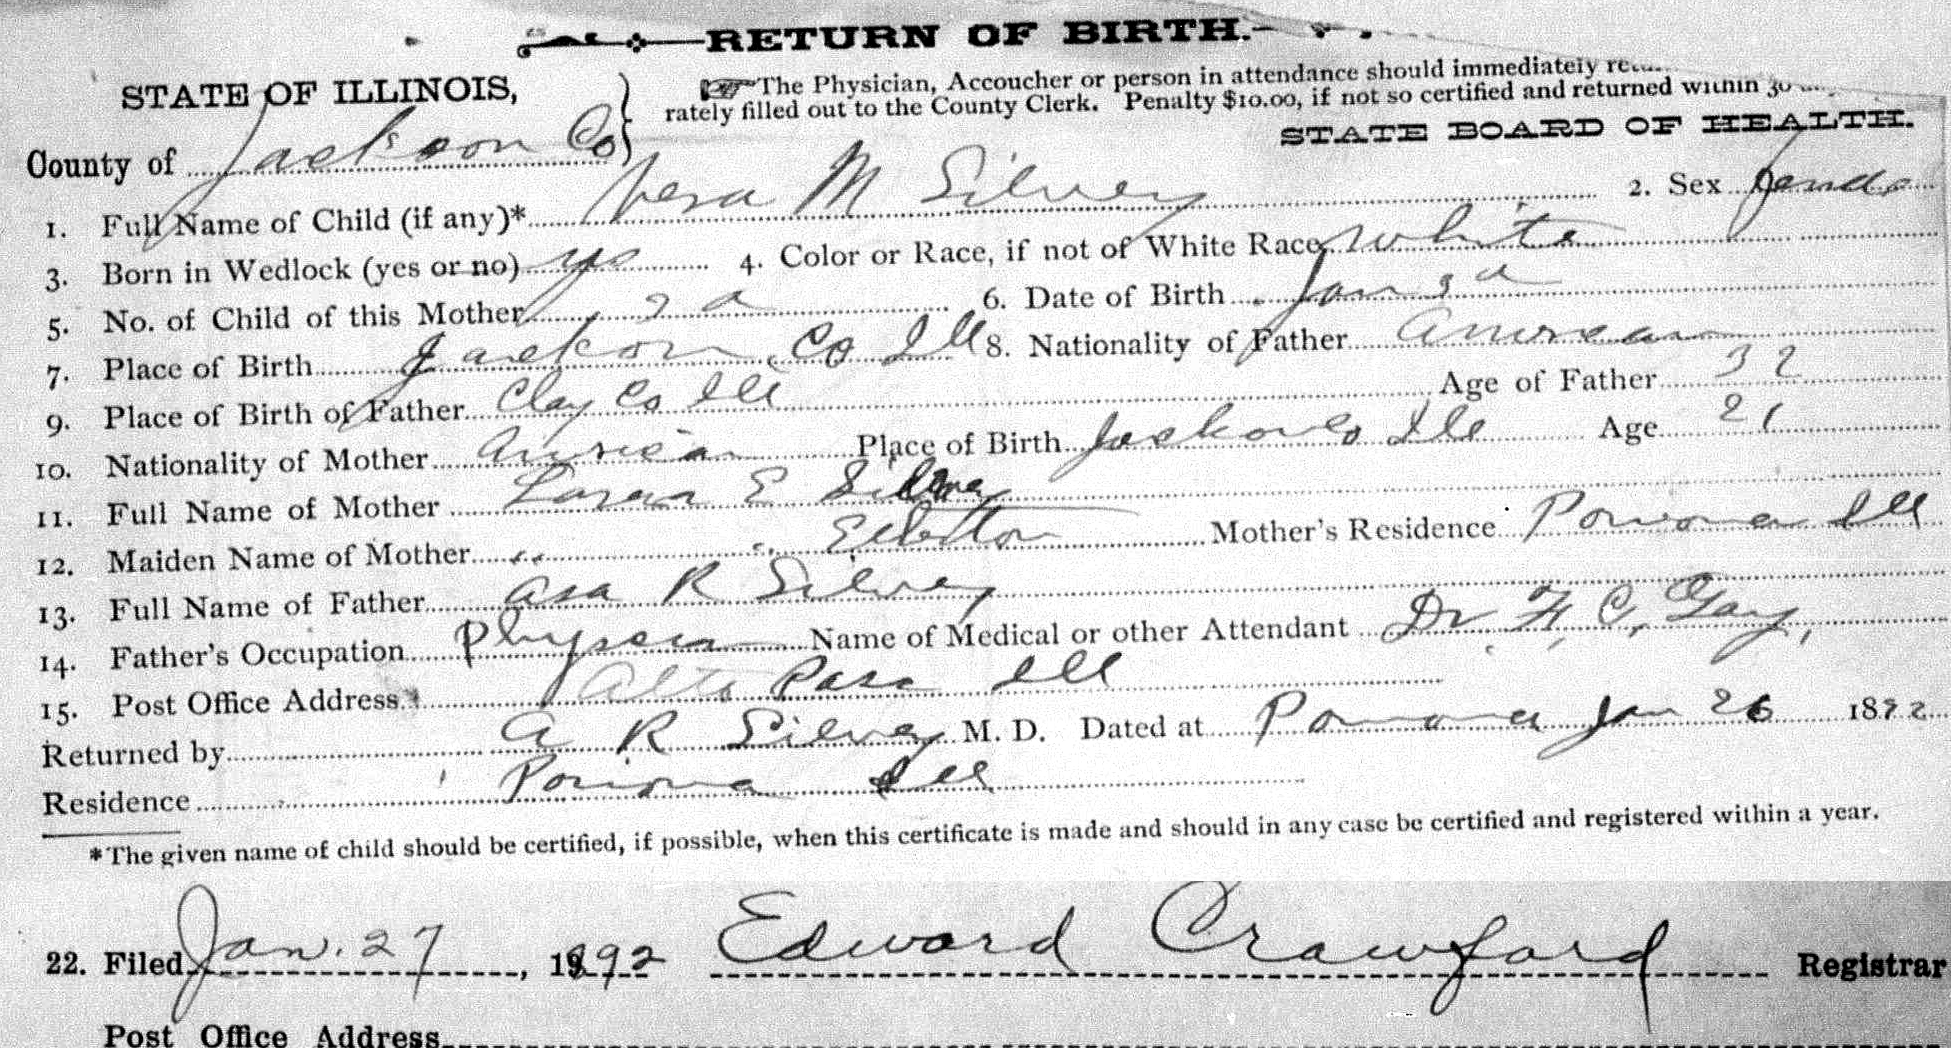 RETURN OF BIRTH.
STATE OF ILLINOIS,
The Physician, Accoucher or person in attendance should immediately
rately filled out to the County Clerk. Penalty $10.00, if not so certified and returned within 30
STATE BOARD OF HEALTH.
County of Jackson Co
1. Full Name of Child (if any)* Vera M Silvey 2. Sex Female
3. Born in Wedlock (yes or no) yes 4. Color or Race, if not of White Race white
5. No. of Child of this Mother 2 d 6. Date of Birth Jan 3 d
7. Place of Birth Jackson Co Ill 8. Nationality of Father American
9. Place of Birth of Father Clay Co Ill Age of Father 32
10. Nationality of Mother American Place of Birth Jackson Co Ill Age 21
11. Full Name of Mother E Silvey
12. Maiden Name of Mother " " Mother's Residence Pomona Ill
13. Full Name of Father Asa R Silvey
14. Father's Occupation Name of Medical or other Attendant Dr. C.
15. Post Office Address Alto Pass Ill
Returned by A R Silvey M. D. Dated at Pomona Jan 26 1892
Residence Pomona Ill
*The given name of child should be certified, if possible, when this certificate is made and should in any case be certified and registered within a year.
22. Filed Jan. 27, 1892 Edward Crawford Registrar
Post Office Address